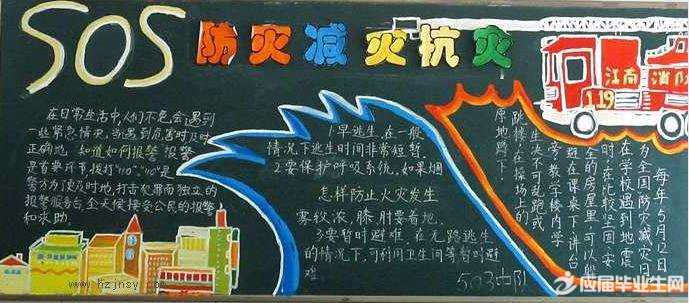 SOS 防灾减灾抗灾
江南 消防
119
在日常生活中人们不免会遇到
一些紧急情况,当遇到危害时及时
正确地,知道如何报警.报警
是首要环节.拨打"110""110"是
警方为了及时地,打击犯罪而独立的
报警服务台,全天候接受公民的报警
和求助.
1早逃生,在一般
情况下逃生时间非常短暂.
2要保护呼吸系统,如果烟
怎样防止火灾发生
雾较浓,膝肘要着地.
3要暂时避难,在无路逃生
的情况下,可利用卫生间等暂时避
难
503中队
每年5月12日
为全国防灾减灾日
在学校遇到地震
时,在比较坚固、安
全的房屋里,可以躲
避在课桌下、讲台
旁,教学楼内学
生决不可乱跑或
跳楼,在操场上的
原地蹲下
应届毕业生网